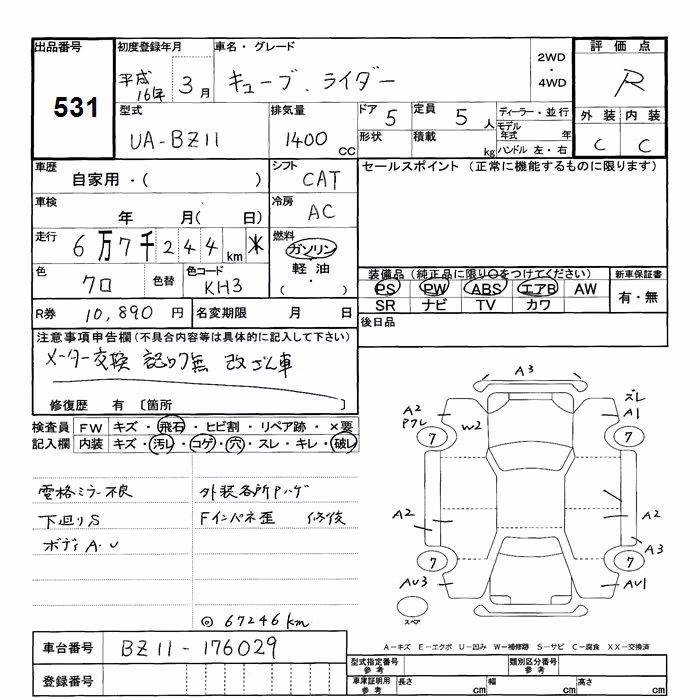 出品番号 初度登録年月 車名・グレード 評価点
531 平成 16年 3月 キューブ ライダー 2WD ・ 4WD R
型式 排気量 ドア 5 定員 5人 ディーラー・並行 外装 内装
UA-BZ11 1400 CC 形状 積載 kg モデル年式 年 C C
ハンドル 左・右
車歴 シフト セールスポイント (正常に機能するものに限ります)
自家用・( ) CAT
車検 冷房
年 月( 日) AC
走行 燃料
6万7千244km * ガソリン
軽油
( ・ )
色 色替 色コード 装備品(純正品に限り○をつけてください) 新車保証書
クロ KH3 PS PW ABS エアB AW 有・無
SR ナビ TV カワ
R券 10,890円 名変期限 月 日 後日品
注意事項申告欄(不具合内容等は具体的に記入して下さい)
メーター交換 認め無 改ざん車
修復歴 有 〔箇所 〕
検査員 FW キズ・飛石・ヒビ割・リペア跡・×要
記入欄 内装 キズ・汚レ・コゲ・穴・スレ・キレ・破レ
電格ミラー不良 外装各所Pハゲ
下廻りS Fインパネ歪 修後
ボディA・U
◎67246km
A3
A2 Pワレ W2 ズレ A1
7 7
A2 A2
A3
7 7
AU3 AU1
スペア
A-キズ E-エクボ U-凹み W-補修跡 S-サビ C-腐食 XX-交換済
車台番号 BZ11-176029
型式指定番号 参考 類別区分番号 参考
登録番号 車庫証明用 参考 長さ cm 幅 cm 高さ cm